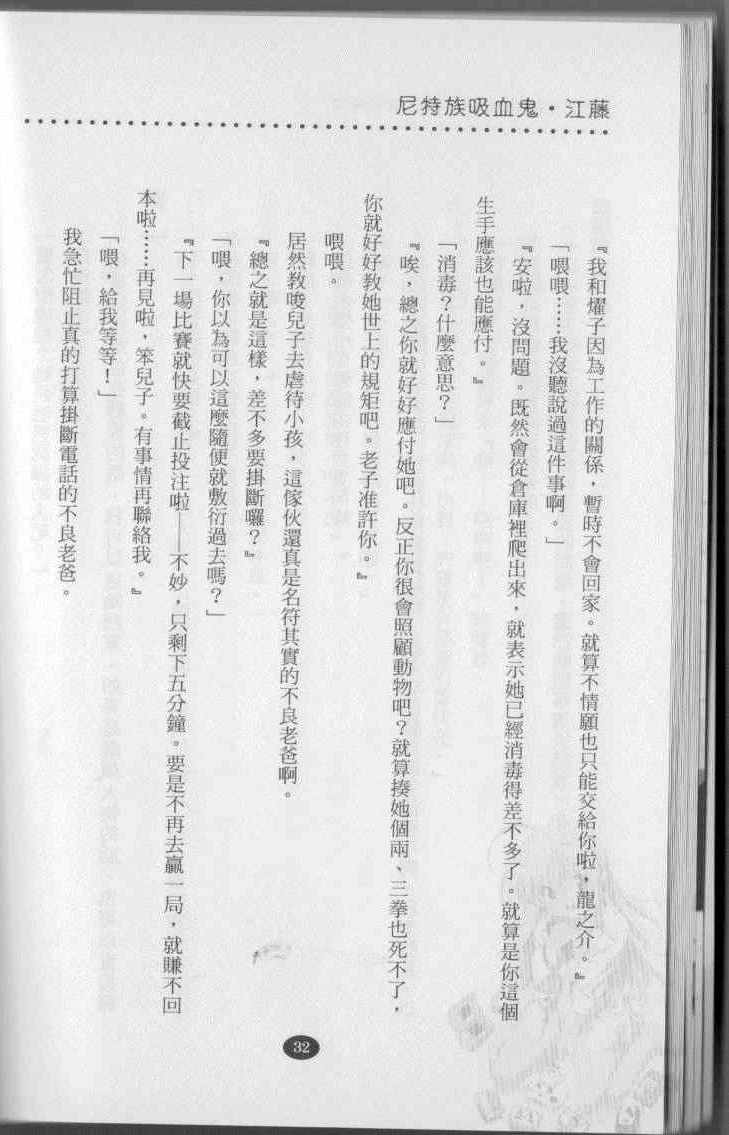 尼特族吸血鬼・江藤
『我和燿子因為工作的關係，暫時不會回家。就算不情願也只能交給你啦，龍之介。』
「喂喂……我沒聽說過這件事啊。」
『安啦，沒問題。既然會從倉庫裡爬出來，就表示她已經消毒得差不多了。就算是你這個
生手應該也能應付。』
「消毒？什麼意思？」
『唉，總之你就好好應付她吧。反正你很會照顧動物吧？就算揍她個兩、三拳也死不了，
你就好好教她世上的規矩吧。老子准許你。』
喂喂。
居然教唆兒子去虐待小孩，這傢伙還真是名符其實的不良老爸啊。
『總之就是這樣，差不多要掛斷囉？』
「喂，你以為可以這麼隨便就敷衍過去嗎？」
『下一場比賽就快要截止投注啦——不妙，只剩下五分鐘。要是不再去贏一局，就賺不回
本啦……再見啦，笨兒子。有事情再聯絡我。』
「喂，給我等等！」
我急忙阻止真的打算掛斷電話的不良老爸。
32